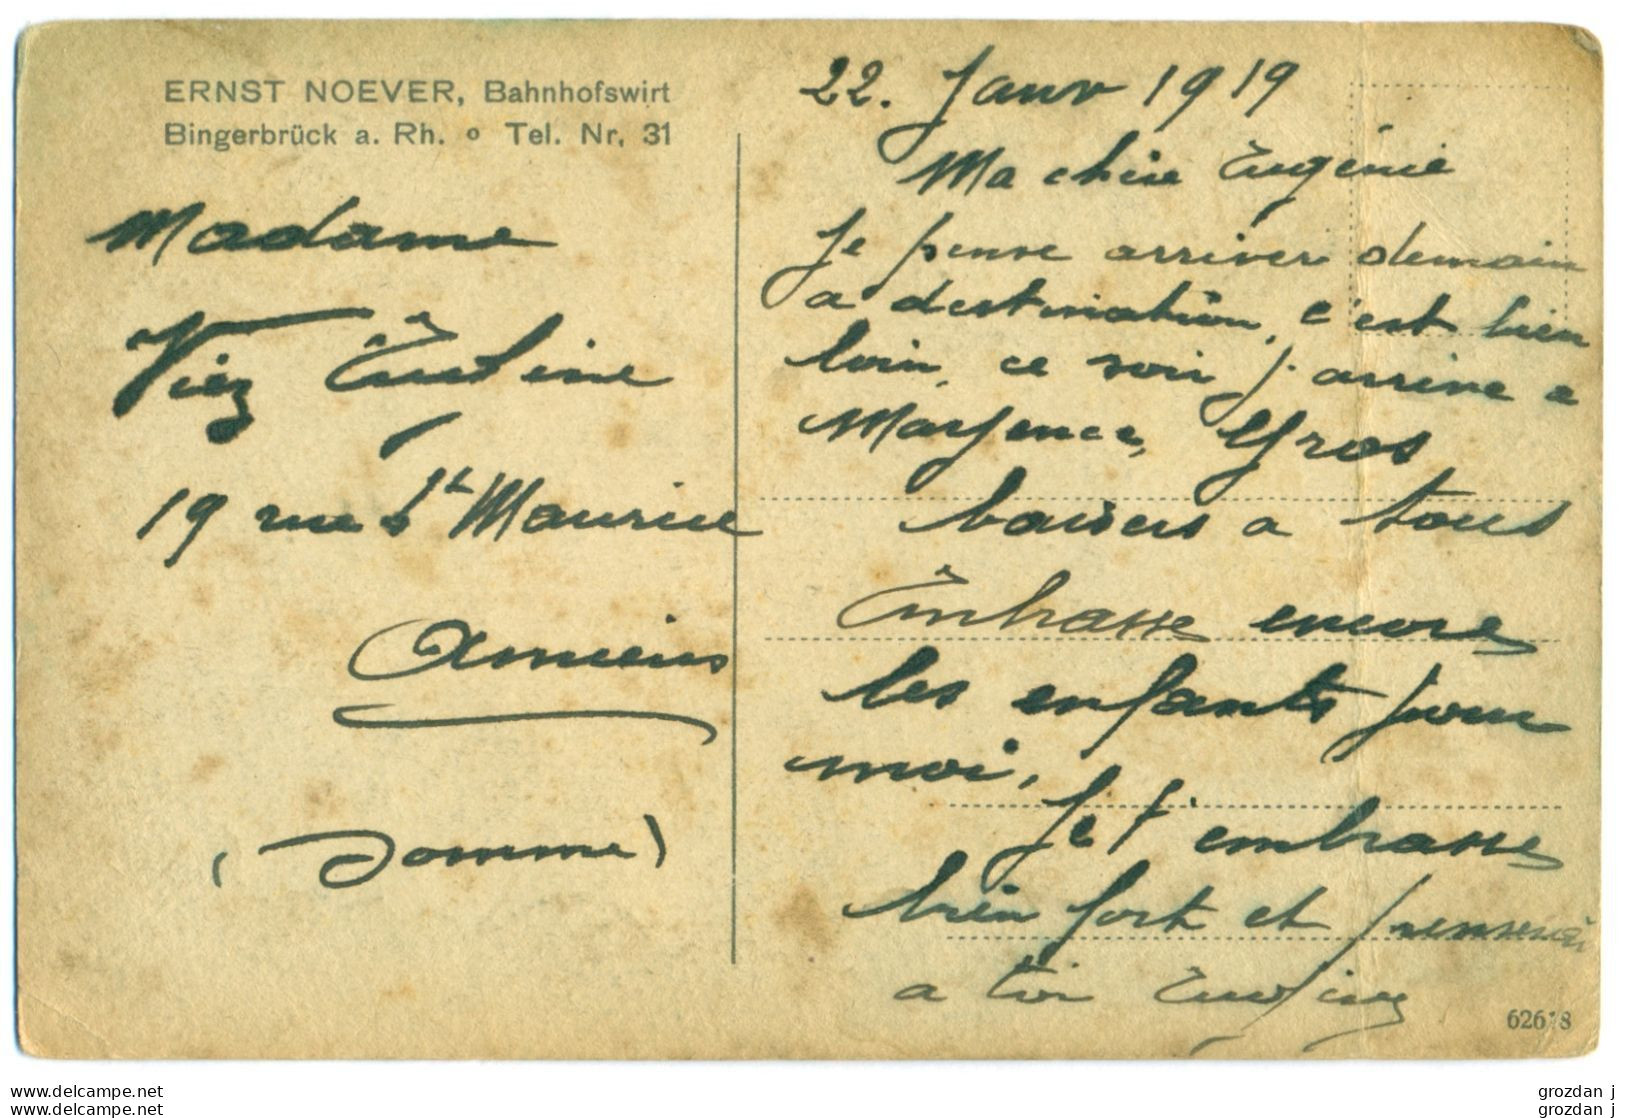 ERNST NOEVER, Bahnhofswirt
Bingerbrück a. Rh. o Tel. Nr. 31
Madame
Viez
19 rue St Maurice
Amiens
(Somme)
22. Janv 1919
Ma chère Eugénie
Je pense arriver demain
a destination, c'est bien
loin, ce soir j'arrive a
Mayence, Gros
baisers a tous
Embrasse encore
les enfants pour
moi,
Je t'embrasse
bien fort et
a toi
62618
www.delcampe.net
www.delcampe.net
grozdan j
grozdan j